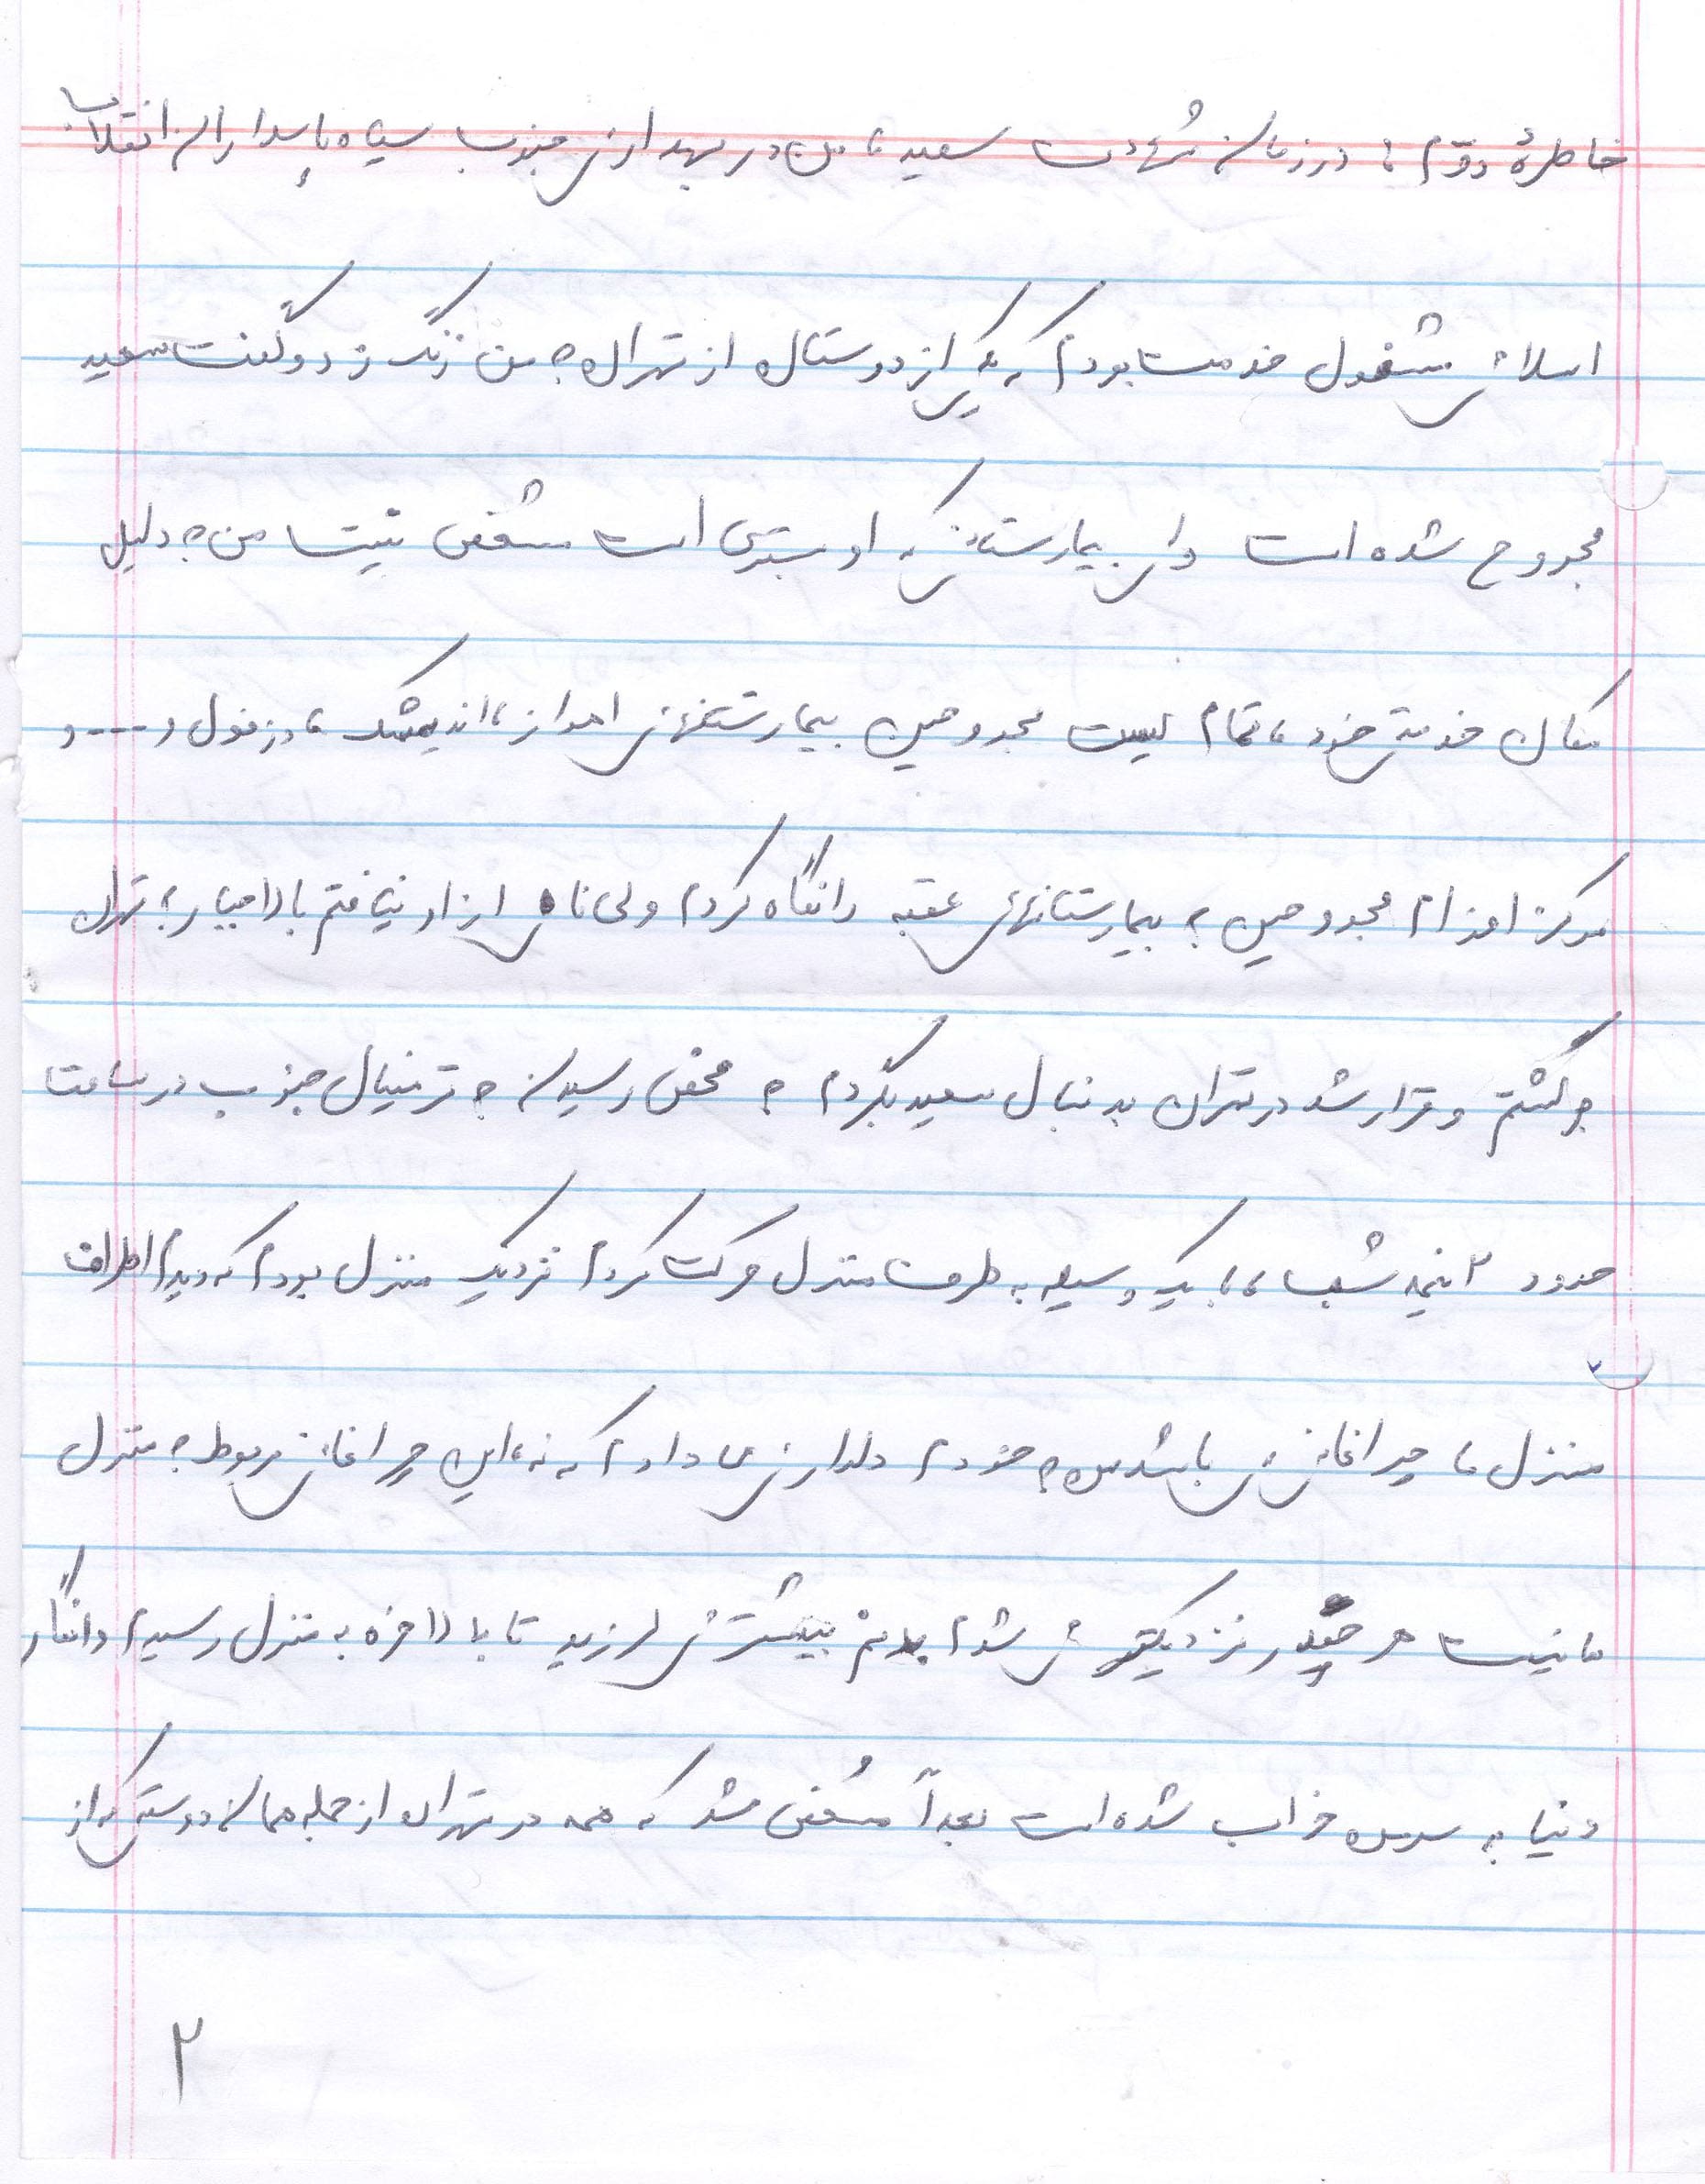 خاطرهٔ دوّم : در زمان شهادت سعید ، من در بهداری جنوب سپاه پاسداران انقلاب
اسلامی مشغول خدمت بودم که یکی از دوستان از تهران به من زنگ زد و گفت سعید
مجروح شده است ولی بیمارستانی که او بستری است مشخص نیست من به دلیل
مکان خدمتی خود ، تمام لیست مجروحین بیمارستانهای اهواز ، اندیمشک ، دزفول و .... و
مرکز اعزام مجروحین به بیمارستانهای عقبه را نگاه کردم ولی نامی از او نیافتم بالاجبار به تهران
برگشتم و قرار شد در تهران بدنبال سعید بگردم به محض رسیدن به ترمینال جنوب در ساعت
حدود ۲ نیمه شب ، با یک وسیله به طرف منزل حرکت کردم نزدیک منزل بودم که دیدم اطراف
منزل ما چراغانی می باشد من به خودم دلداری می دادم که نه ، این چراغانی مربوط به منزل
ما نیست هر چقدر نزدیکتر می شدم بدنم بیشتر می لرزید تا بالاخره به منزل رسیدم و انگار
دنیا به سرم خراب شده است بعداً مشخص شد که همه در تهران از جمله همان دوستی که از
۲